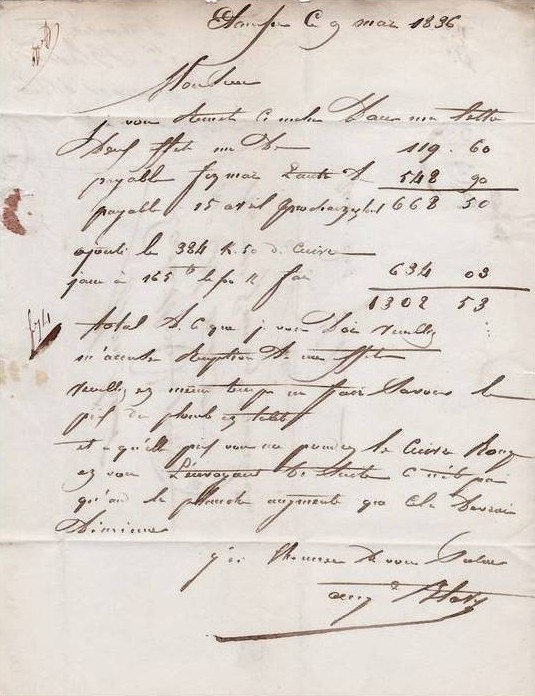 Ce 9 mar 1836
Monsieur
je vous Remet Ci inclus Dans ma lettre
Deux effet un De 119. 60
payable fin mar L'autre D 548 90
payable 15 avril prochain 668 50
ajouté les 384 K. 50 de Cuivre
jaune à 165 le fai 634 03
1302 53
total De Ce que je vous Dois veuillez
m'accuser Reception De mes effets
veuillez en meme temps me faire Savoir le
prix du plomb en table
et a quelle prix vous me prendrez le Cuivre Rouge
en vous L'envoyant De Suite C n'est pas
quand la planche augmente que Cela Devrai
Diminuer
j'ai l'honneur De vous Saluer